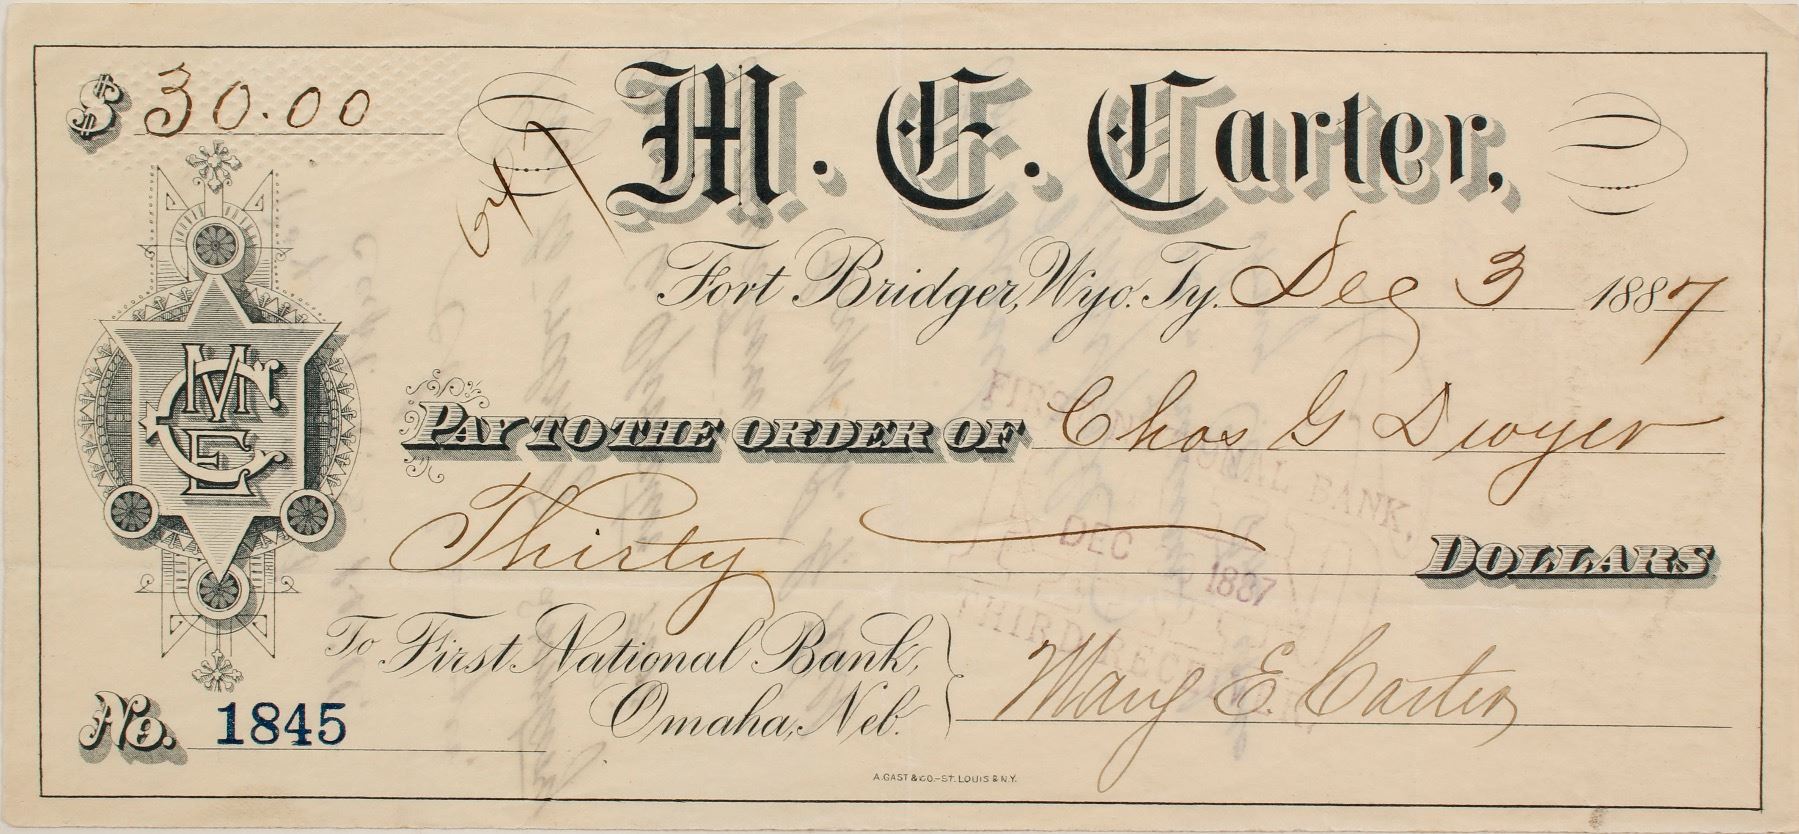 $ 30.00
647
M. E. Carter,
Fort Bridger, Wyo. Ty. Dec 3 1887
MCE
PAY TO THE ORDER OF Chas G Dwyer
Thirty DOLLARS
To First National Bank,
Omaha, Neb.
Mary E. Carter
No. 1845
A. GAST & CO.-ST. LOUIS & N.Y.
FIRST NATIONAL BANK,
DEC 1887
THIRD